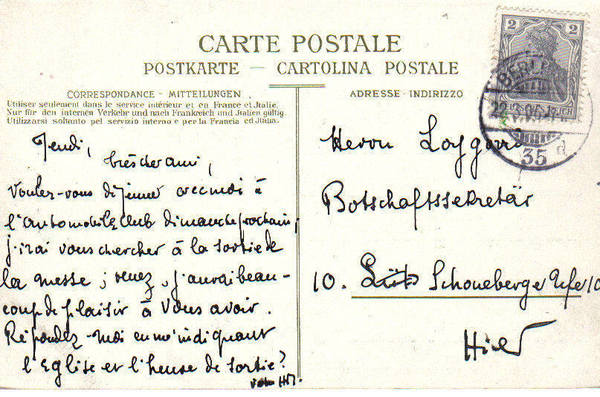 CARTE POSTALE
POSTKARTE – CARTOLINA POSTALE
CORRESPONDANCE - MITTEILUNGEN
Utiliser seulement dans le service intérieur et en France et Italie.
Nur für den internen Verkehr und nach Frankreich und Italien gültig
Utilizzarsi soltanto pel servizio interno e per la Francia ed Italia.
Jeudi,
très cher ami,
Voulez-vous déjeuner avec moi à
l'Automobile Club dimanche prochain;
j'irai vous chercher à la sortie de
la messe; venez, j'aurai beau-
coup de plaisir à vous avoir.
Répondez-moi en m'indiquant
l'Eglise et l'heure de sortie?
ADRESSE - INDIRIZZO
2 2
BERLIN
35 d
Herrn
Botschaftssekretär
10. Schoneberger Ufer 10
Hier